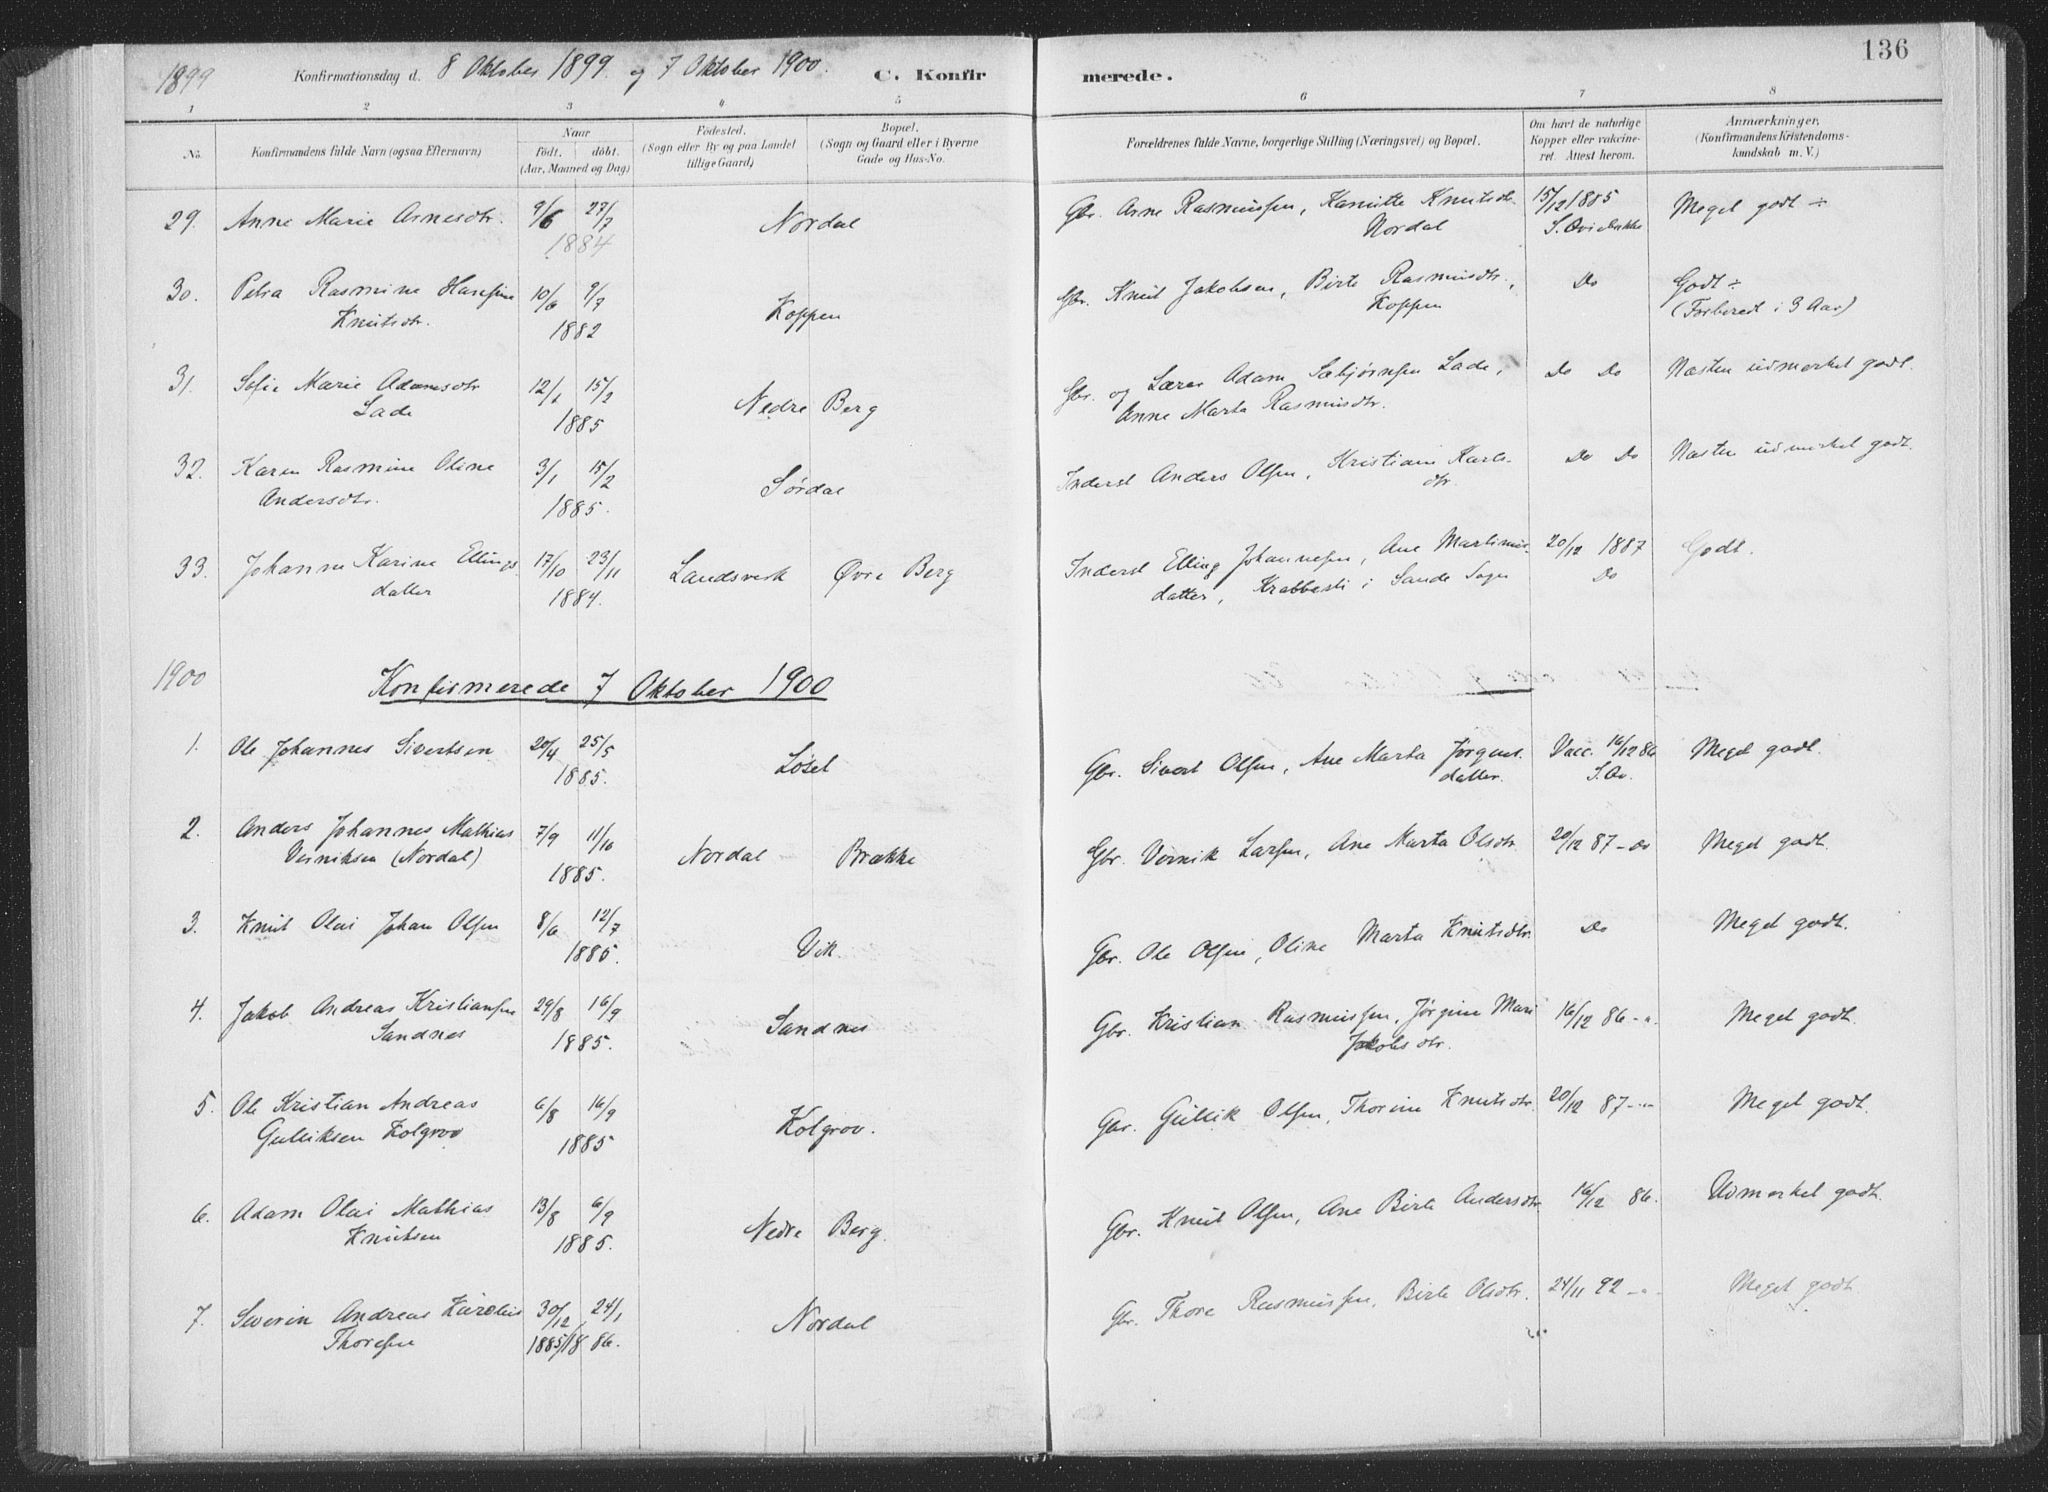 136
1899 Konfirmationsdag d. 8 Oktober 1899 og 7 Oktober 1900. C. Konfirmerede.
1 2 3 4 5 6 7 8
No. Konfirmandens fulde Navn (ogsaa Efternavn) Naar født. døbt. (Aar, Maaned og Dag) Fødested. (Sogn eller By og paa Landet tillige Gaard) Bopæl. (Sogn og Gaard eller i Byerne Gade og Hus-No. Forældrenes fulde Navne, borgerlige Stilling (Næringsvei) og Bopæl. Om havt de naturlige Kopper eller vakcineret. Attest herom. Anmærkninger. (Konfirmandens Kristendomskundskab m. V.)
29. Anne Marie Arnesdtr. 9/6 27/7 Nordal Gbr. Arne Rasmussen, Knutsdtr. 15/12 1885 Meget godt ÷
1884 Nordal
30. Petra Rasmine Hansine 10/6 9/7 Koppen Gbr. Knut Jakobsen, Birte Rasmusdtr., Do Godt ÷
Knutsdtr. 1882 Koppen (Forberedt i 3 Aar)
31. Sofie Marie Adamsdtr 12/1 15/2 Nedre Berg Gbr. og Lærer Adam Sæbjørnsen Lade, Do Do Næsten udmerket godt.
Lade 1885 Anne Marta Rasmusdtr.
32. Karen Rasmine Oline 3/1 15/2 Sørdal Inderst Anders Olsen, Kristiane Karls- Do Do Næsten udmerket godt.
Andersdtr. 1885. dtr.
33. Johanne Karine Ellings 17/10 23/11 Landsverk Øvre Berg Inderst Elling Johannesen, Ane Martinus- 20/12 1887 Godt.
datter 1884. datter, Krabbesti i Sande Sogn Do
1900 Konfirmerede 7 Oktober 1900
1. Ole Johannes Sivertsen 20/4 25/5 Løset Gbr. Sivert Olsen, Ane Marta Jørgens- Vacc. 16/12 86 Meget godt.
1885. datter. S. Ov.
2. Anders Johannes Mathias 7/9 11/10 Nordal Brække Gbr. Vernik Larsen, Ane Marta Olsdtr. 20/12 87 - Do Meget godt.
Verniksen (Nordal) 1885.
3. Knut Olai Johan Olsen 8/6 12/7 Vik. Gbr. Ole Olsen, Oline Marta Knutsdtr. Do Meget godt.
1885.
4. Jakob Andreas Kristiansen 29/8 16/9 Sandnes Gbr. Kristian Rasmussen, Jørgine Marie 16/12 86 - " Meget godt.
Sandnes 1885. Jakobsdtr.
5. Ole Kristian Andreas 6/8 16/9 Kolgrov. Gbr. Gullik Olsen, Thorine Knutsdtr. 20/12 87 - " Meget godt.
Gulliksen Kolgrov 1885
6. Adam Olai Mathias 13/8 6/9 Nedre Berg. Gbr. Knut Olsen, Ane Birte Andersdtr. 16/12 86. Udmerket godt.
Knutsen 1885.
7. Severin Andreas Karolius 30/12 24/1 Nordal Gbr. Thore Rasmussen, Birte Olsdtr. 24/11 92 - " Meget godt
Thoresen 1885/1886.